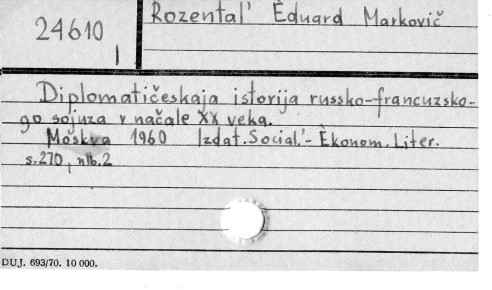 24610
I
Rozental' Èduard Markovič
Diplomatičeskaja istorija russko-francuzsko-
go sojuza v načale XX veka.
Moskva 1960 Izdat. Social.'-Èkonom. Liter.
s.270, nlb.2
DUJ. 693/70. 10 000.